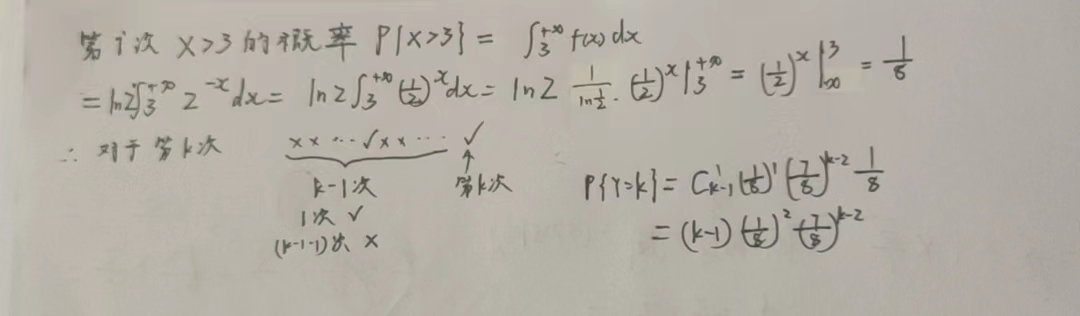 第i次 X>3 的概率 P{X>3} = ∫₃^{+∞} f(x) dx
= ln2∫₃^{+∞} 2^{-x} dx = ln2∫₃^{+∞} (1/2)^x dx = ln2 1/(ln 1/2) · (1/2)^x |₃^{+∞} = (1/2)^x |_{∞}^{3} = 1/8
∴ 对于第k次 ×× … √×× … √
k-1次 ↑ 第k次
P{Y=k} = C_{k-1}^1 (1/8)^1 (7/8)^{k-2} 1/8
1次 √
(k-1-1)次 ×
= (k-1) (1/8)^2 (7/8)^{k-2}